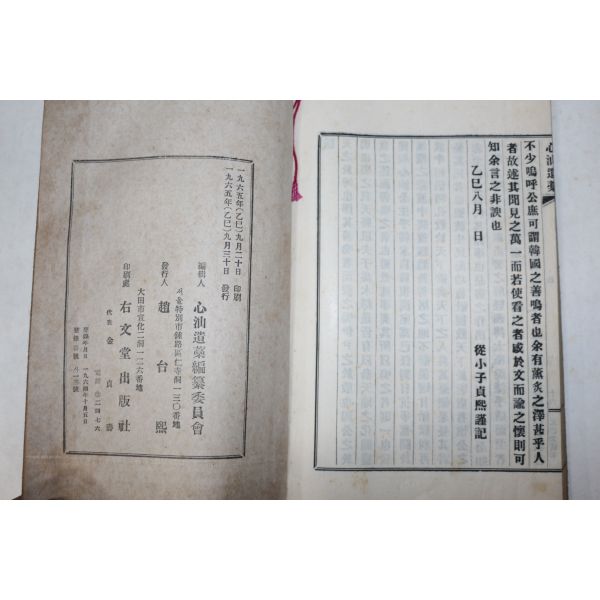 心汕遺藁
不少嗚呼公庶可謂韓國之善鳴者也余有薰炙之澤甚乎人
者故述其聞見之萬一而若使看之者感於文而論之懷則可
知余言之非諛也
乙巳八月 日
從小子貞熙謹記
一九六五年(乙巳)九月二十日 印刷
一九六五年(乙巳)九月三十日 發行
編輯人 心汕遺藁編纂委員會
서울特別市鍾路區仁寺洞一三〇番地
發行人 趙台熙
大田市宣化二洞一二六番地
印刷處 右文堂出版社
代表 金貞壽
電話 ②二四七六
登錄年月日 一九六四年十月五日
登錄番號